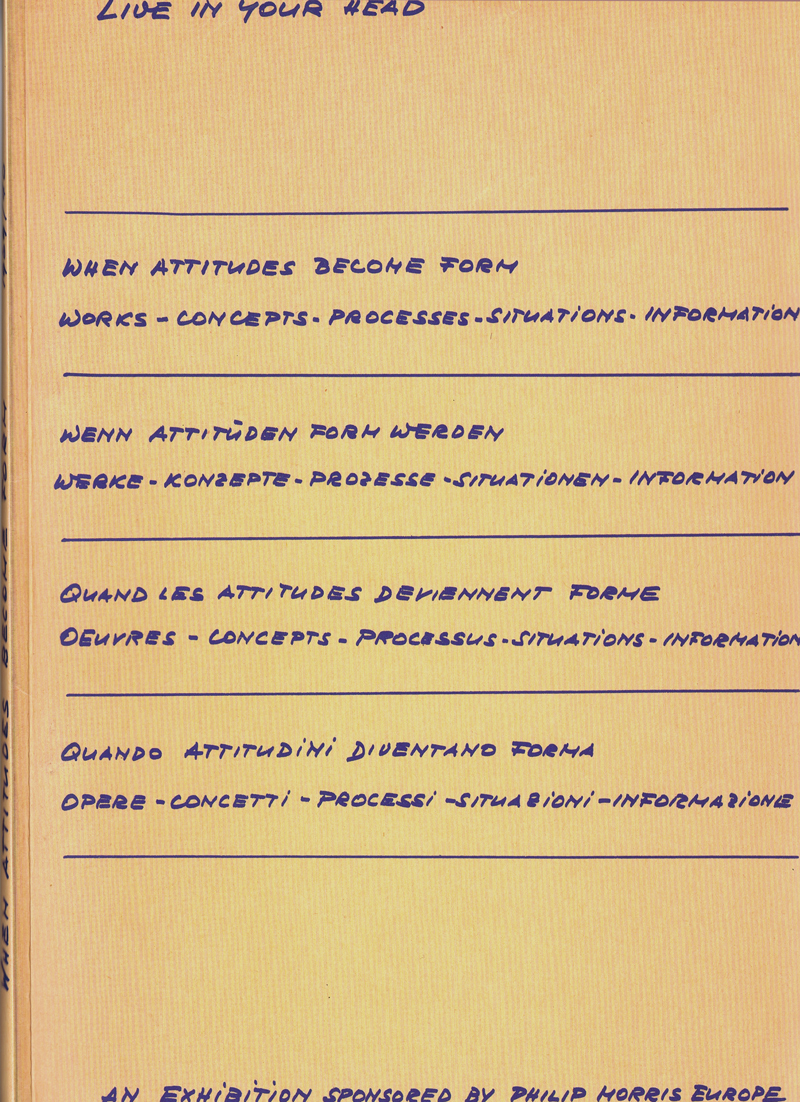 LIVE IN YOUR HEAD
WHEN ATTITUDES BECOME FORM
WORKS - CONCEPTS - PROCESSES - SITUATIONS - INFORMATION
WENN ATTITÜDEN FORM WERDEN
WERKE - KONZEPTE - PROZESSE - SITUATIONEN - INFORMATION
QUAND LES ATTITUDES DEVIENNENT FORME
OEUVRES - CONCEPTS - PROCESSUS - SITUATIONS - INFORMATION
QUANDO ATTITUDINI DIVENTANO FORMA
OPERE - CONCETTI - PROCESSI - SITUAZIONI - INFORMAZIONE
AN EXHIBITION SPONSORED BY PHILIP MORRIS EUROPE
WHEN ATTITUDES BECOME FORM